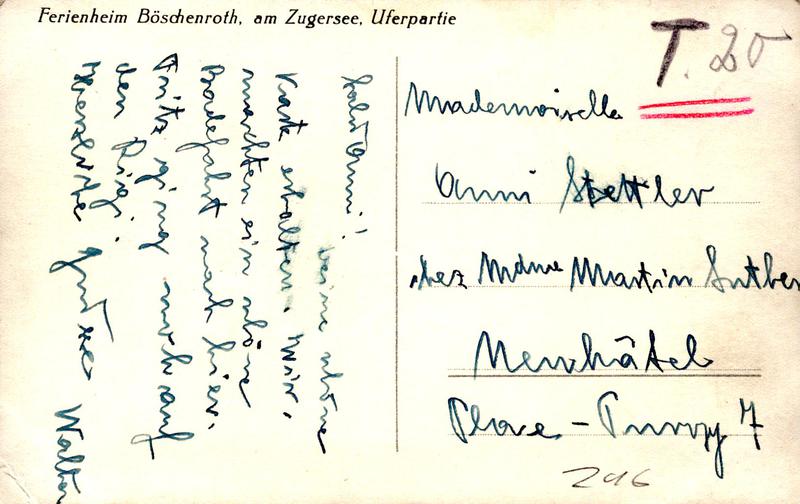 Ferienheim Böschenroth, am Zugersee, Uferpartie
T. 20
Mademoiselle
Anni Stettler
chez Mdme Martin Luther
Neuchâtel
Place - Purry 7
246
Anni!
Deine schöne
Karte erhalten. Wir
machten ein schöne
Badefahrt nach hier.
Fritz ging noch auf
den Rigi.
Herzliche Grüsse
Walter